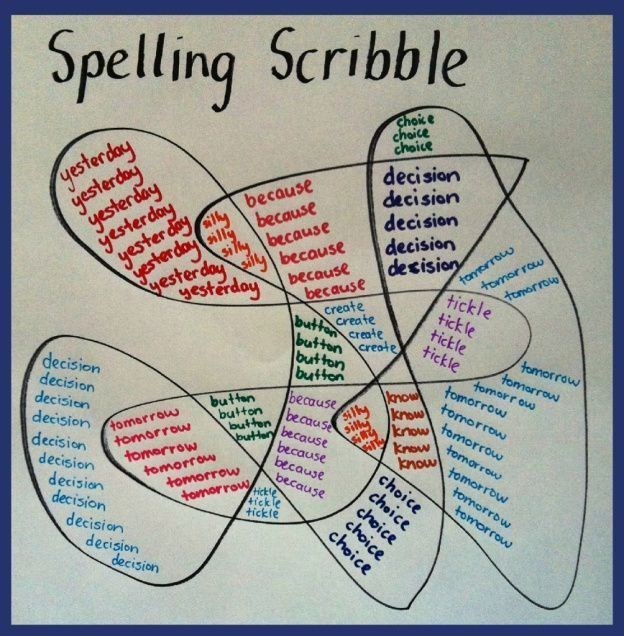 Spelling Scribble
yesterday
yesterday
yesterday
yesterday
yesterday
yesterday
yesterday
yesterday
silly
silly
silly
silly
because
because
because
because
because
because
choice
choice
choice
decision
decision
decision
decision
decision
tomorrow
tomorrow
tomorrow
create
create
create
create
button
button
button
button
tickle
tickle
tickle
tickle
decision
decision
decision
decision
decision
decision
decision
decision
decision
decision
decision
tomorrow
tomorrow
tomorrow
tomorrow
tomorrow
tomorrow
button
button
button
button
tickle
tickle
tickle
because
because
because
because
because
because
silly
silly
silly
silly
know
know
know
know
know
choice
choice
choice
choice
choice
tomorrow
tomorrow
tomorrow
tomorrow
tomorrow
tomorrow
tomorrow
tomorrow
tomorrow
tomorrow